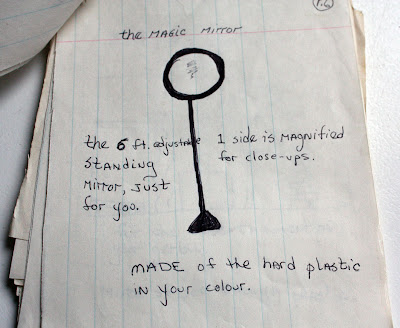 the MAGIC MIRROR
the 6 ft. adjustable
STANDING
MIRROR, JUST
for you.
1 side is MAGNified
for close-ups.
MADE of the hard plastic
IN your colour.